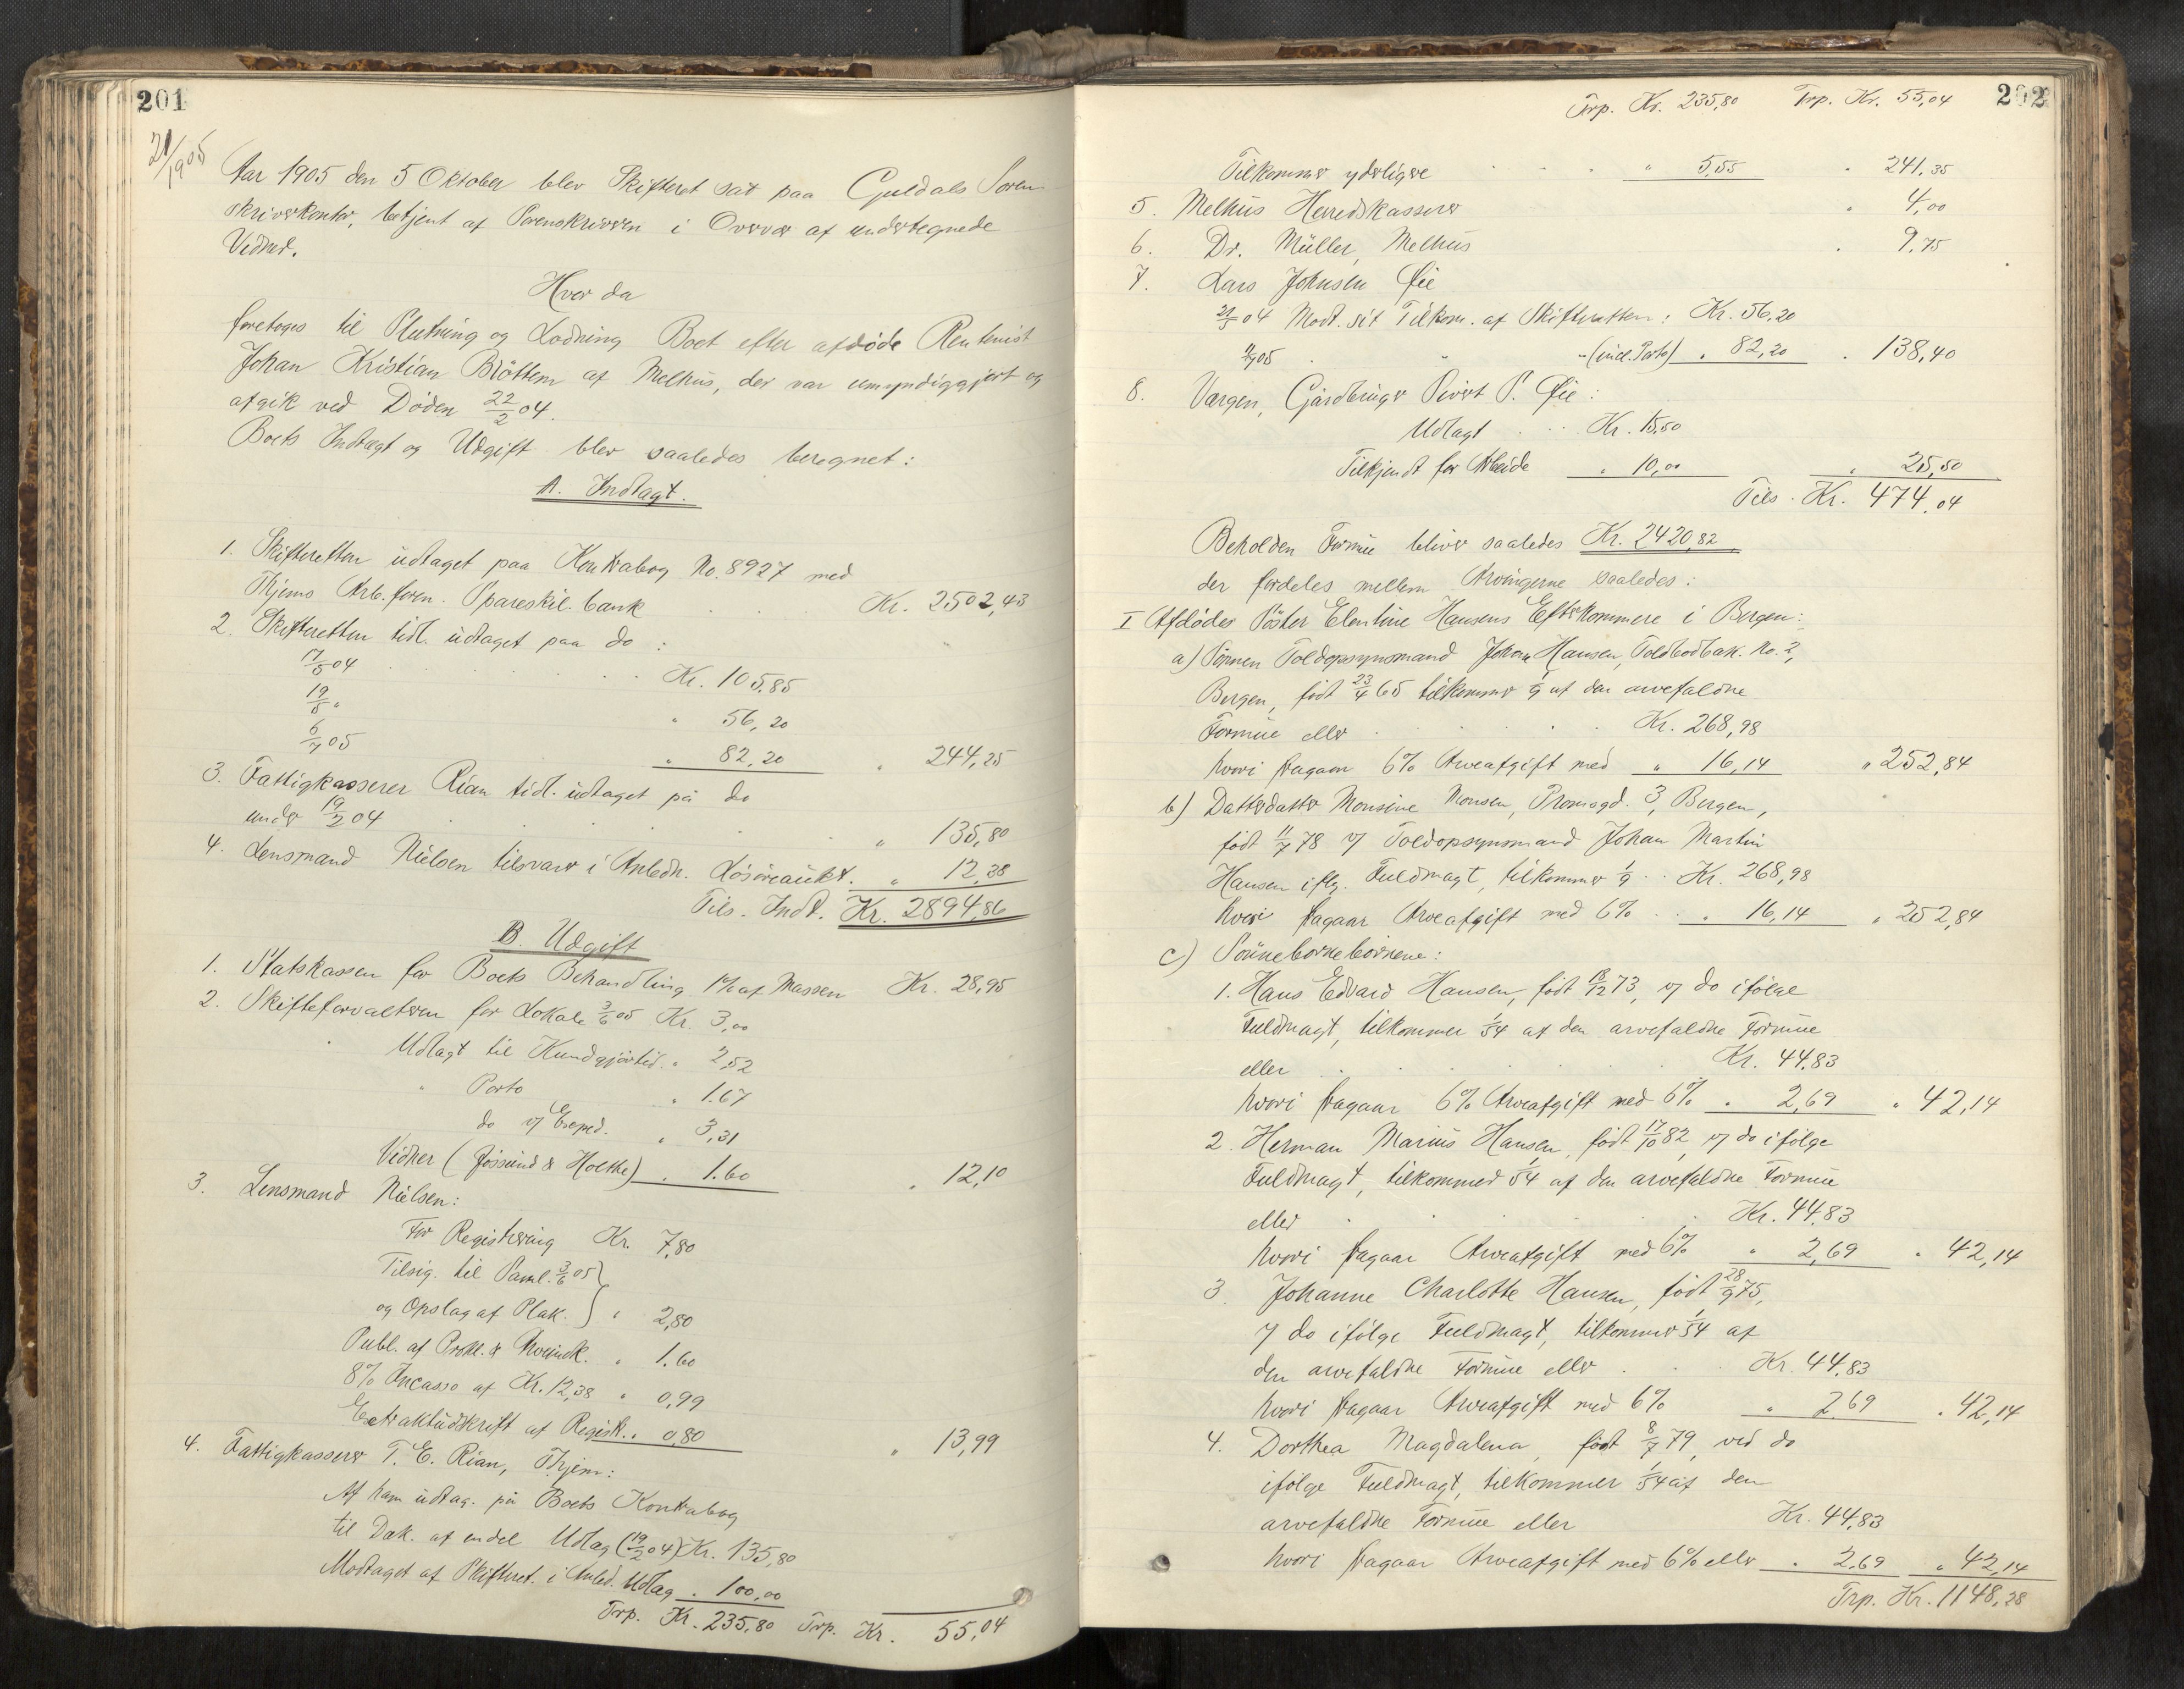 201
21/1905
Aar 1905 den 5 Oktober blev Skifteret sat paa Guldals Soren-
skriverkontor, betjent af Sorenskriveren i Overvær af undertegnede
Vidner.
Hvor da
foretoges til Slutning og Lodning Boet efter afdøde Rentenist
Johan Kristian Bröttem af Melhus, der var umyndiggjort og
afgik ved Døden 22/2 04.
Boets Indtægt og Udgift blev saaledes beregnet:
A. Indtægt.
1. Skifteretten udtaget paa Kontrabog No. 8927 med
Thjems Arb. foren. Spareskil. bank Kr. 2502,43
2. Skifteretten tidl. udtaget paa do :
17/5 04 Kr. 105,85
19/5 " " 56,20
6/7 05 " 82,20 " 244,25
3. Fattigkasserer Rian tidl. udtaget på do
under 19/2 04 " 135,80
4. Lensmand Nielsen tilsvarer i Anledn. Løsøreaukt. " 12,38
Tils. Indt. Kr. 2894,86
B. Udgift
1. Statskassen for Boets Behandling 1% af Massen Kr. 28,95
2. Skifteforvalteren for Lokale 3/6 05 Kr. 3,00
Udlagt til Kundgjörtid. " 2,52
" Porto " 1.67
do v/ Exped. " 3,31
Vidner (Jössund & Holthe) " 1.60 " 12,10
3. Lensmand Nielsen:
For Registrering Kr. 7,80
Tilsig. til Saml. 3/6 05 }
og Opslag af Plak. } " 2,80
Publ. af Prokl. & " 1.60
8% Incasso af Kr. 12,38 " 0,99
Extraktudskrift af Registr. " 0,80 " 13,99
4. Fattigkasserer T. E. Rian, Thjem:
Af ham udtag. på Boets Kontrabog
til Dæk. af endel Udlæg (19/2 04) Kr. 135,80
Modtaget af Skifteret. i Anled. Udlæg " 100,00
Trp. Kr. 235,80 Trp. Kr. 55,04
202
Trp. Kr. 235,80 Trp. Kr. 55,04
Tilkommer yderligere " 5,55 " 241,35
5. Melhus Herredskasserer " 4,00
6. Dr. Müller, Melhus " 9,75
7. Lars Johnsen Øie
21/5 04 Modt. sit Tilkom. af Skifteretten: Kr. 56,20
11/7 05 " " (incl. Porto) " 82,20 " 138,40
8. Værgen, Gårdbruger Sivert P. Øie :
Udlagt Kr. 15,50
Tilkjendt for Arbeide " 10,00 " 25,50
Tils. Kr. 474,04
Beholden Formue bliver saaledes Kr. 2420,82
der fordeles mellem Arvingerne saaledes:
I Afdødes Søster Elentine Hansens Efterkommere i Bergen:
a) Sönnen Toldopsynsmand Johan Hansen, Toldbodbak. No. 2,
Bergen, født 23/4 65 tilkommer 1/9 af den arvefaldne
Formue eller Kr. 268,98
hvori fragaar 6% Arveafgift med " 16,14 " 252,84
b) Datterdatter Monsine Monsen, Promsgd. 3, Bergen,
født 11/7 78 v/ Toldopsynsmand Johan Martin
Hansen iflg. Fuldmagt, tilkommer 1/9 Kr. 268,98
hvori fragaar Arveafgift med 6% " 16,14 " 252,84
c) Sönnebörnebörnene:
1. Hans Edvard Hansen, født 18/12 73, v/ do ifølge
Fuldmagt, tilkommer 1/54 af den arvefaldne Formue
eller Kr. 44,83
hvori fragaar 6% Arveafgift med 6% " 2,69 " 42,14
2. Herman Marius Hansen, født 17/10 82, v/ do ifølge
Fuldmagt, tilkommer 1/54 af den arvefaldne Formue
eller Kr. 44,83
hvori fragaar Arveafgift med 6% " 2,69 " 42,14
3. Johanne Charlotte Hansen, født 28/9 75,
v/ do ifølge Fuldmagt, tilkommer 1/54 af
den arvefaldne Formue eller Kr. 44,83
hvori fragaar Arveafgift med 6% " 2,69 " 42,14
4. Dorthea Magdalena, født 8/7 79, ved do
ifølge Fuldmagt, tilkommer 1/54 af den
arvefaldne Formue eller Kr. 44,83
hvori fragaar Arveafgift med 6% eller " 2,69 " 42,14
Trp. Kr. 1148,28